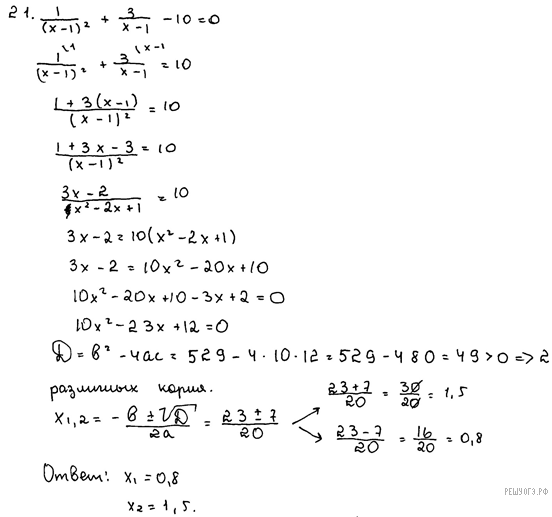 21. 1/(x-1)² + 3/(x-1) - 10 = 0
1\1/(x-1)² + 3\x-1/(x-1) = 10
(1 + 3(x-1))/(x-1)² = 10
(1 + 3x - 3)/(x-1)² = 10
(3x - 2)/(x² - 2x + 1) = 10
3x - 2 = 10(x² - 2x + 1)
3x - 2 = 10x² - 20x + 10
10x² - 20x + 10 - 3x + 2 = 0
10x² - 23x + 12 = 0
D = b² - 4ac = 529 - 4·10·12 = 529 - 480 = 49 > 0 => 2
различных корня.
x₁,₂ = (-b ± √D)/2a = (23 ± 7)/20
(23 + 7)/20 = 30/20 = 1,5
(23 - 7)/20 = 16/20 = 0,8
Ответ: x₁ = 0,8
x₂ = 1,5.
РЕШУОГЭ.РФ